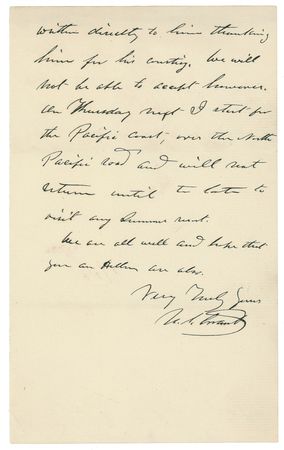 written directly to him thanking
him for his courtesy. We will
not be able to accept however.
On Thursday next I start for
the Pacific coast, over the North
Pacific road and will not
return until to late to
visit any Summer resort.
We are all well and hope that
you an are also.
Very Truly Yours
U. S. Grant